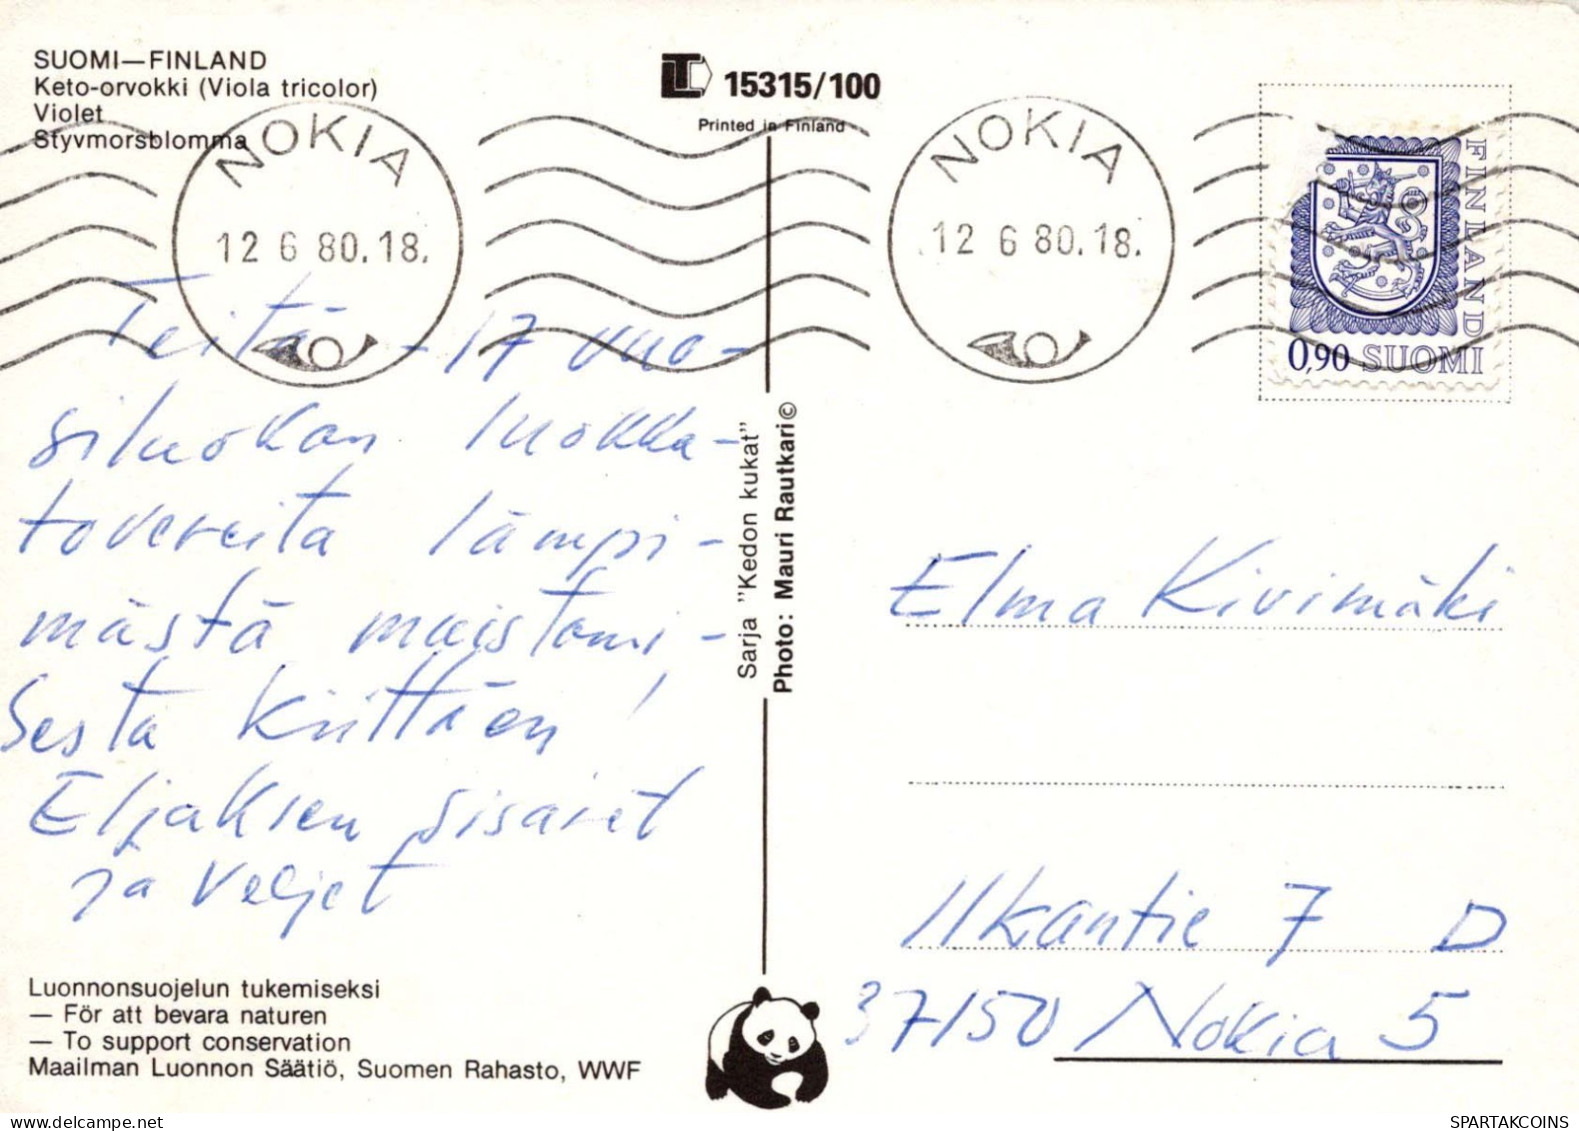 SUOMI—FINLAND
Keto-orvokki (Viola tricolor)
Violet
Styvmorsblomma
15315/100
Printed in Finland
NOKIA
12 6 80.18.
NOKIA
12 6 80.18.
FINLAND
0,90 SUOMI
Teitä - 17 vuo-
siluokan luokka-
tovereita lämpi-
mästä muistami-
sesta kiittäen!
Eljaksen sisaret
ja veljet
Sarja "Kedon kukat"
Photo: Mauri Rautkari©
Elma Kivimäki
Ilkantie 7 D
37150 Nokia 5
Luonnonsuojelun tukemiseksi
— För att bevara naturen
— To support conservation
Maailman Luonnon Säätiö, Suomen Rahasto, WWF
SPARTAKCOINS